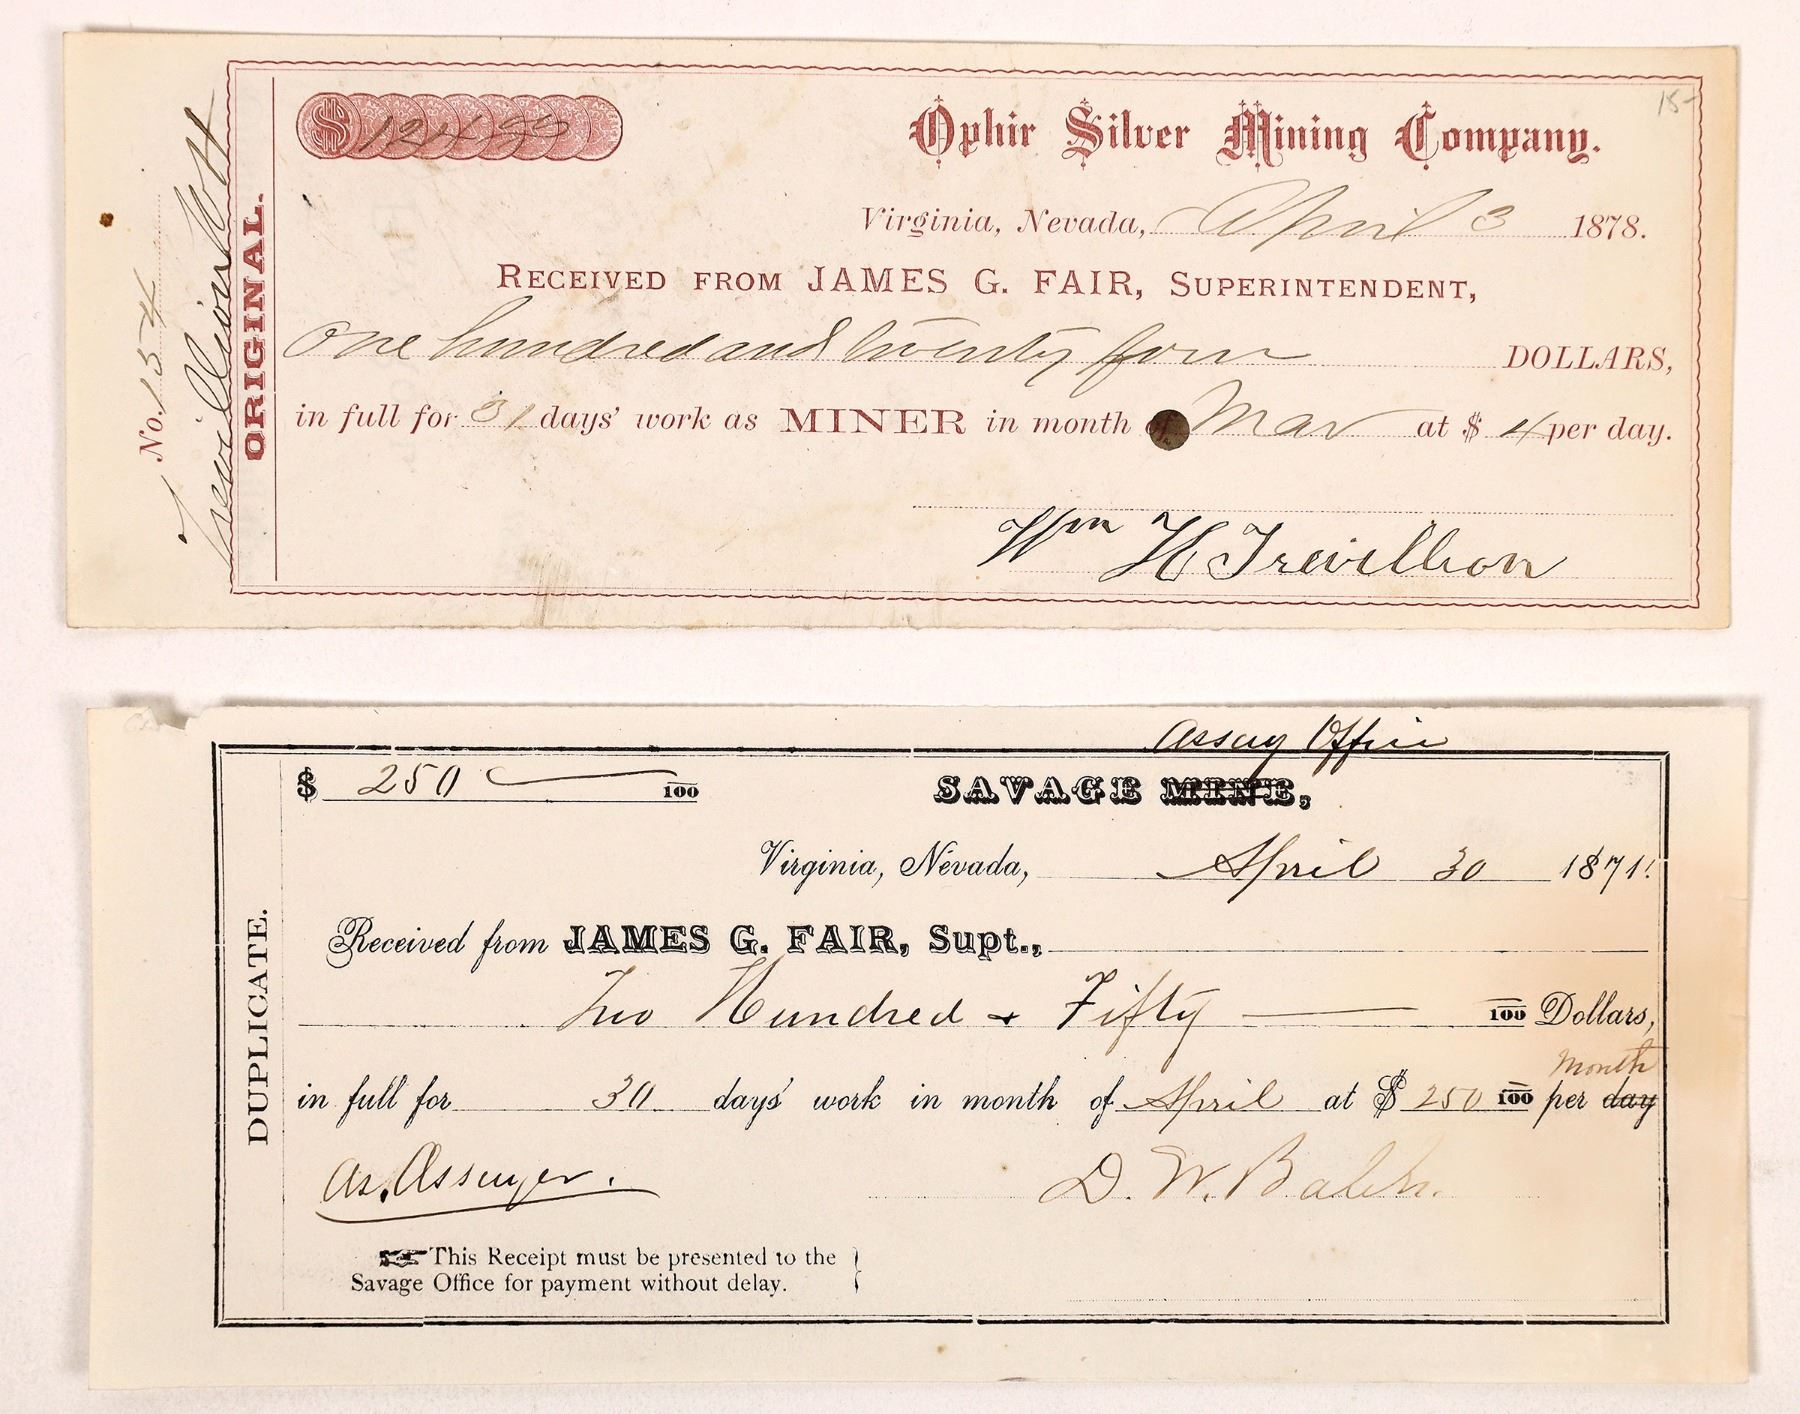 15-
$ 124 00
Ophir Silver Mining Company.
Virginia, Nevada, April 3 1878.
RECEIVED FROM JAMES G. FAIR, SUPERINTENDENT,
One hundred and twenty four DOLLARS,
in full for 31 days' work as MINER in month of Mar at $ 4 per day.
Wm H Trevillion
ORIGINAL.
No. 154
Trevillion Wm H
Assay Office
$ 250 100
SAVAGE MINE,
Virginia, Nevada, April 30 1871.
Received from JAMES G. FAIR, Supt.,
Two Hundred + Fifty 100 Dollars,
month
in full for 30 days' work in month of April at $ 250 100 per day
As, Assayer.
D. W. Balch.
This Receipt must be presented to the
Savage Office for payment without delay.
DUPLICATE.